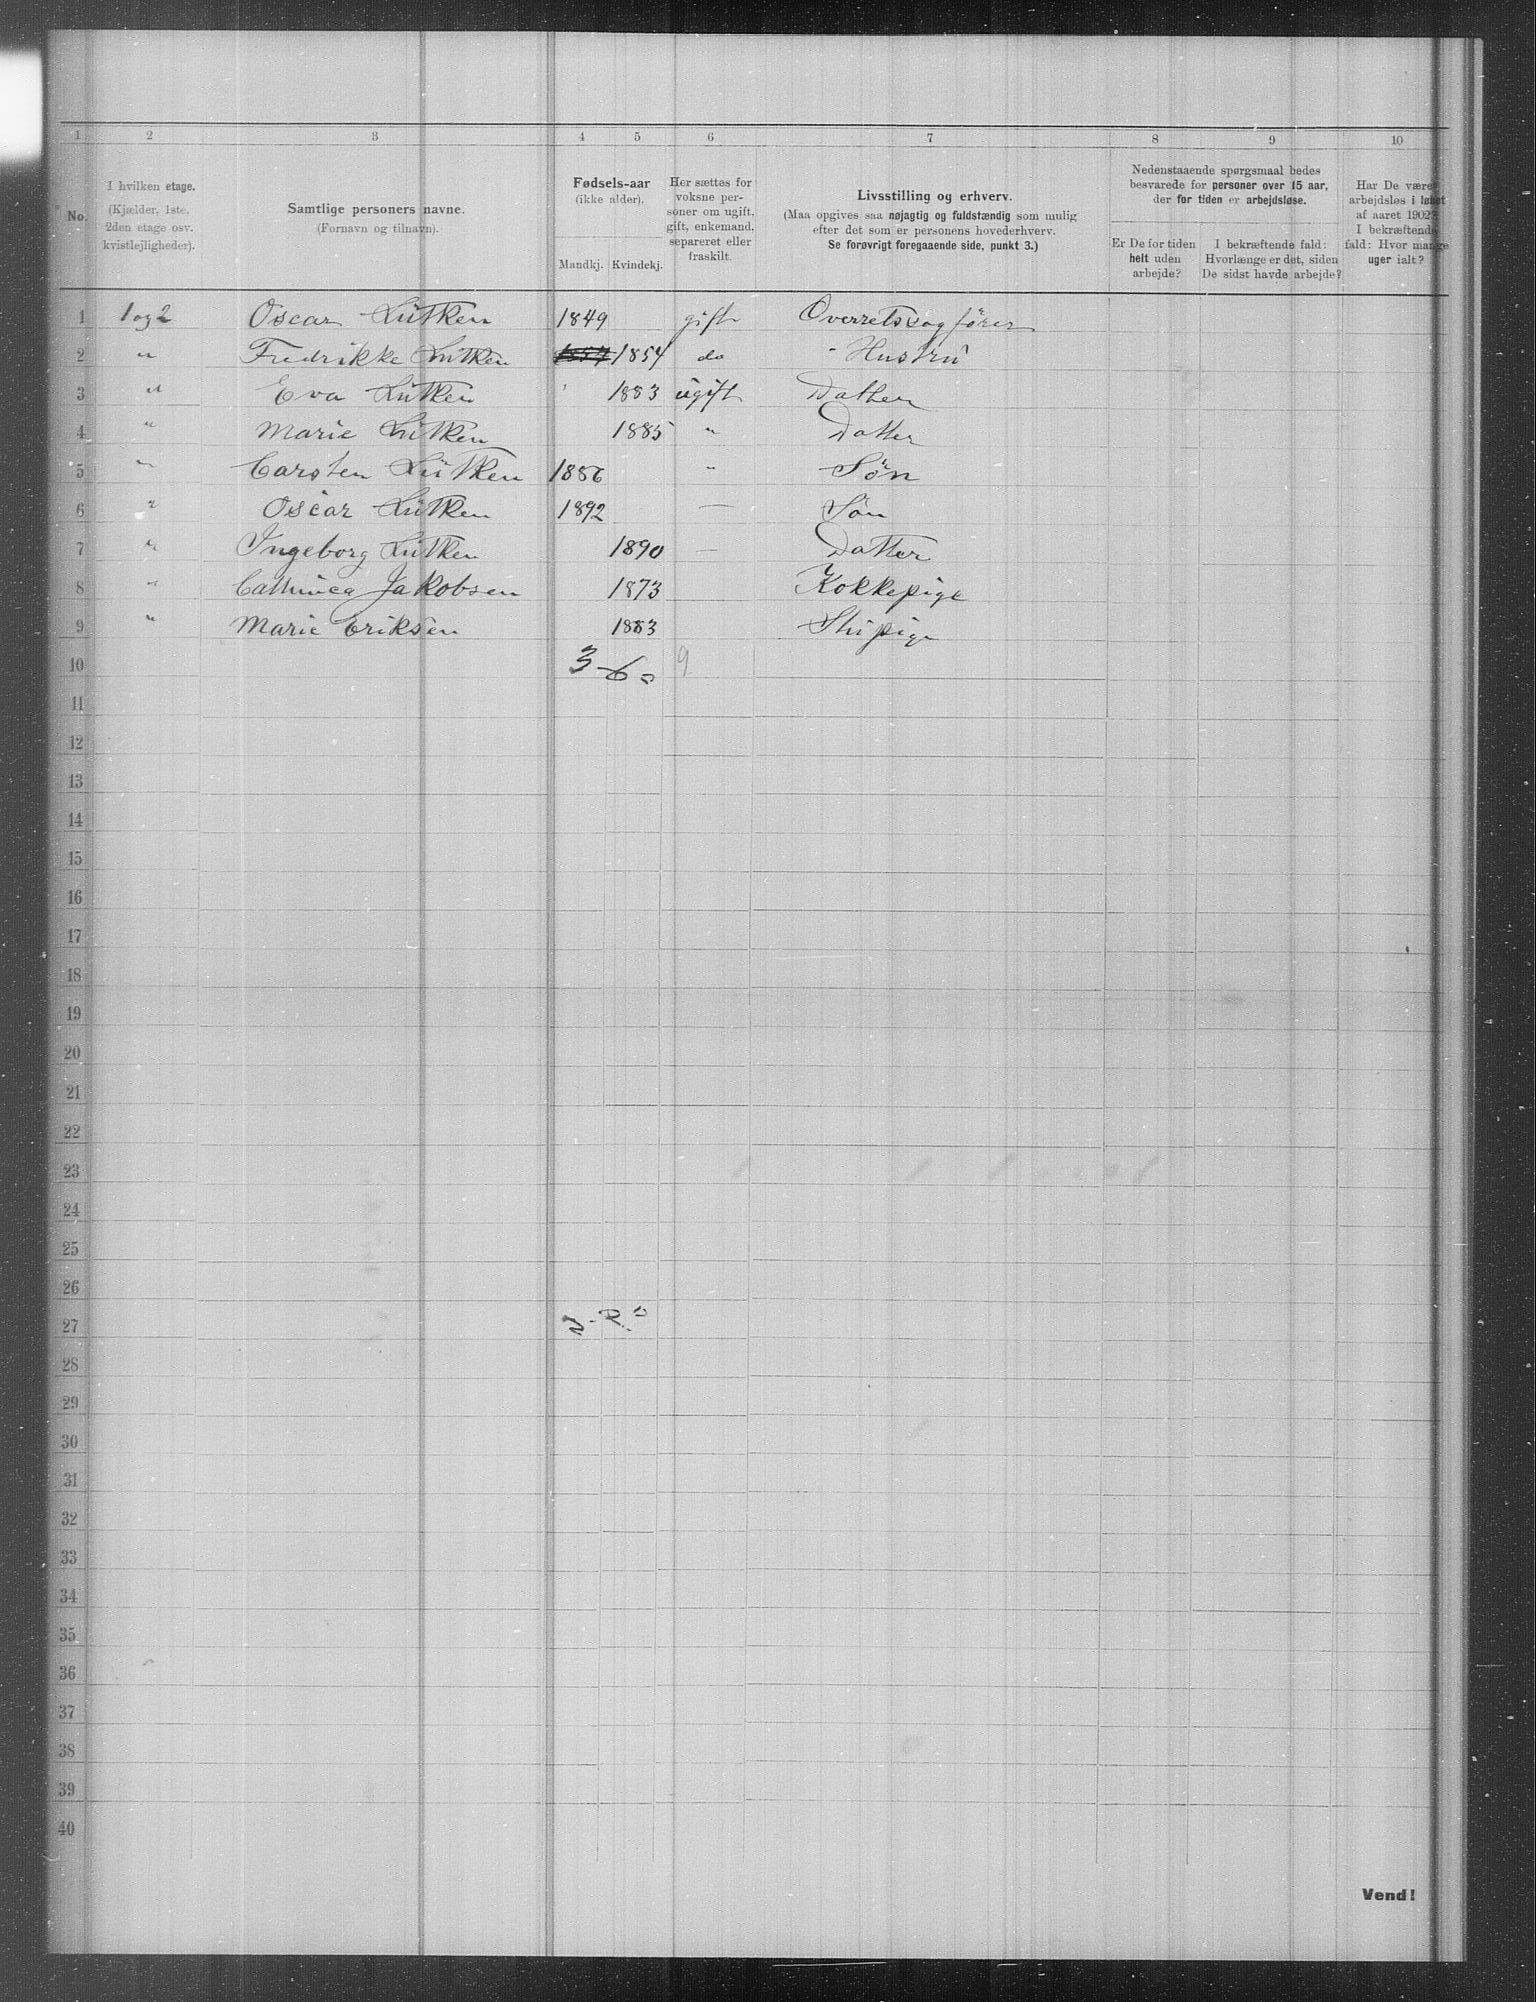 1 2 3 4 5 6 7 8 9 10
No.
I hvilken etage.
(Kjælder, 1ste,
2den etage osv.
kvistlejligheder).
Samtlige personers navne.
(Fornavn og tilnavn).
Fødsels-aar
(ikke alder).
Mandkj. Kvindekj.
Her sættes for
voksne per-
soner om ugift,
gift, enkemand,
separeret eller
fraskilt.
Livsstilling og erhverv.
(Maa opgives saa nøjagtig og fuldstændig som mulig
efter det som er personens hovederhverv.
Se forøvrigt foregaaende side, punkt 3.)
Nedenstaaende spørgsmaal bedes
besvarede for personer over 15 aar,
der for tiden er arbejdsløse.
Er De for tiden
helt uden
arbejde?
I bekræftende fald:
Hvorlænge er det, siden
De sidst havde arbejde?
Har De være
arbejdsløs i løbet
af aaret 1902?
I bekræftende
fald: Hvor mange
uger ialt?
1 1 og 2 Oscar Lütken 1849 gift Overretssagfører
2 " Fredrikke Lütken 1854 do Hustru
3 " Eva Lütken 1883 ugift Datter
4 " Marie Lütken 1885 " Datter
5 " Carsten Lütken 1886 " Søn
6 " Oscar Lütken 1892 — Søn
7 " Ingeborg Lütken 1890 — Datter
8 " Cathinca Jakobsen 1873 Kokkepige
9 " Marie Eriksen 1883 Stupige
10 3-6= 9
11
12
13
14
15
16
17
18
19
20
21
22
23
24
25
26
27
28
29
30
31
32
33
34
35
36
37
38
39
40
Vend!